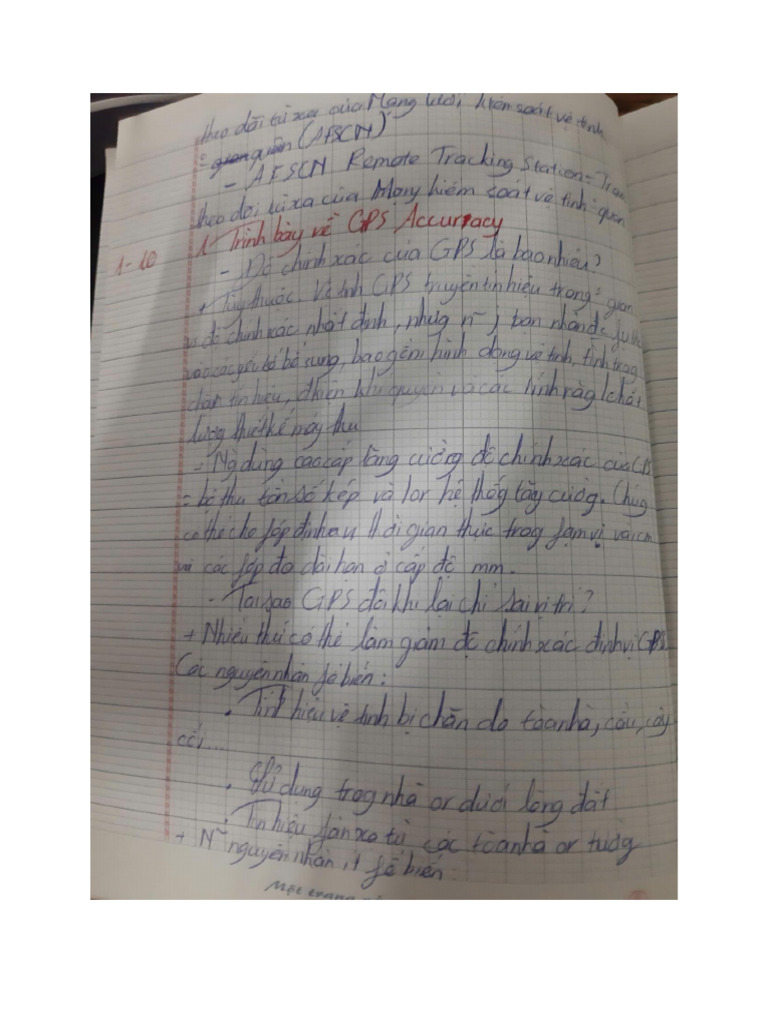 theo dõi từ xa của Mạng lưới kiểm soát vệ tinh
quân (AFSCN)
- AFSCN Remote Tracking Station = Trạm
theo dõi từ xa của Mạng kiểm soát vệ tinh quân
1-10
1 Trình bày về GPS Accuracy
- Độ chính xác của GPS là bao nhiêu?
+ Tùy thuộc. Vệ tinh GPS truyền tín hiệu trong gian
độ chính xác nhất định, nhưg bạn nhận đc
vào các yếu tố bổ sung, bao gồm hình dạng vệ tinh, tình trạg
chặn tín hiệu, đkiện khí quyển và các tính năg/chất
lượng thiết kế máy thu
- Ng dùng cao cấp tăng cường độ chính xác của GPS
= bộ thu tần số kép và/or hệ thốg tăg cườg. Chúg
có thể cho fép định vị thời gian thực trog fạm vị vài cm
và các fép đo dài hạn ở cấp độ mm.
- Tại sao GPS đôi khi lại chỉ sai vị trí?
+ Nhiều thứ có thể làm giảm độ chính xác định vị GPS
Các nguyên nhân fổ biến:
. Tính hiệu vệ tinh bị chặn do tòa nhà, cầu, cây
cối...
. Sử dụng trog nhà or dưới lòng đất
. Tín hiệu fản xạ từ các tòa nhà or tườg
+ N~ nguyên nhân ít fổ biến:
Một trang